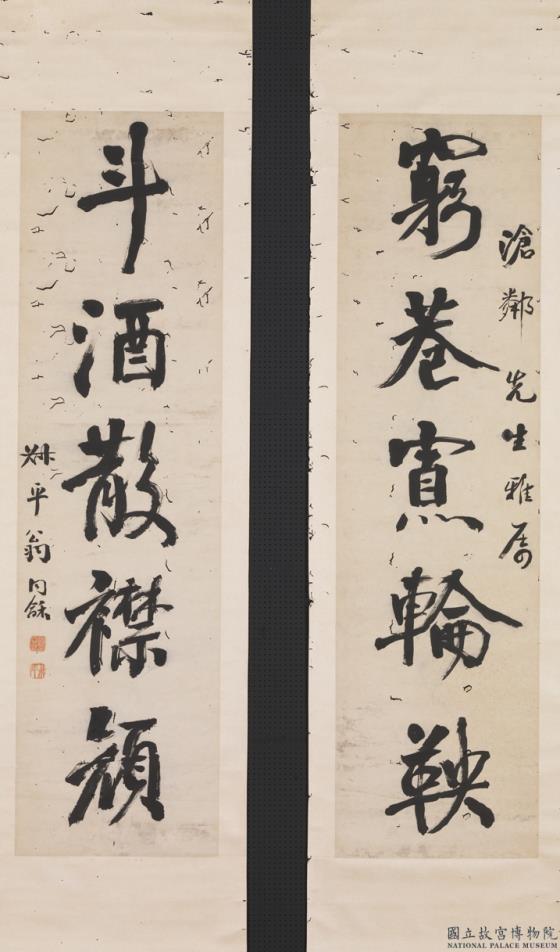 滄鄰先生雅屬
窮巷寡輪鞅
斗酒散襟顏
叔平翁同龢
國立故宮博物院
NATIONAL PALACE MUSEUM